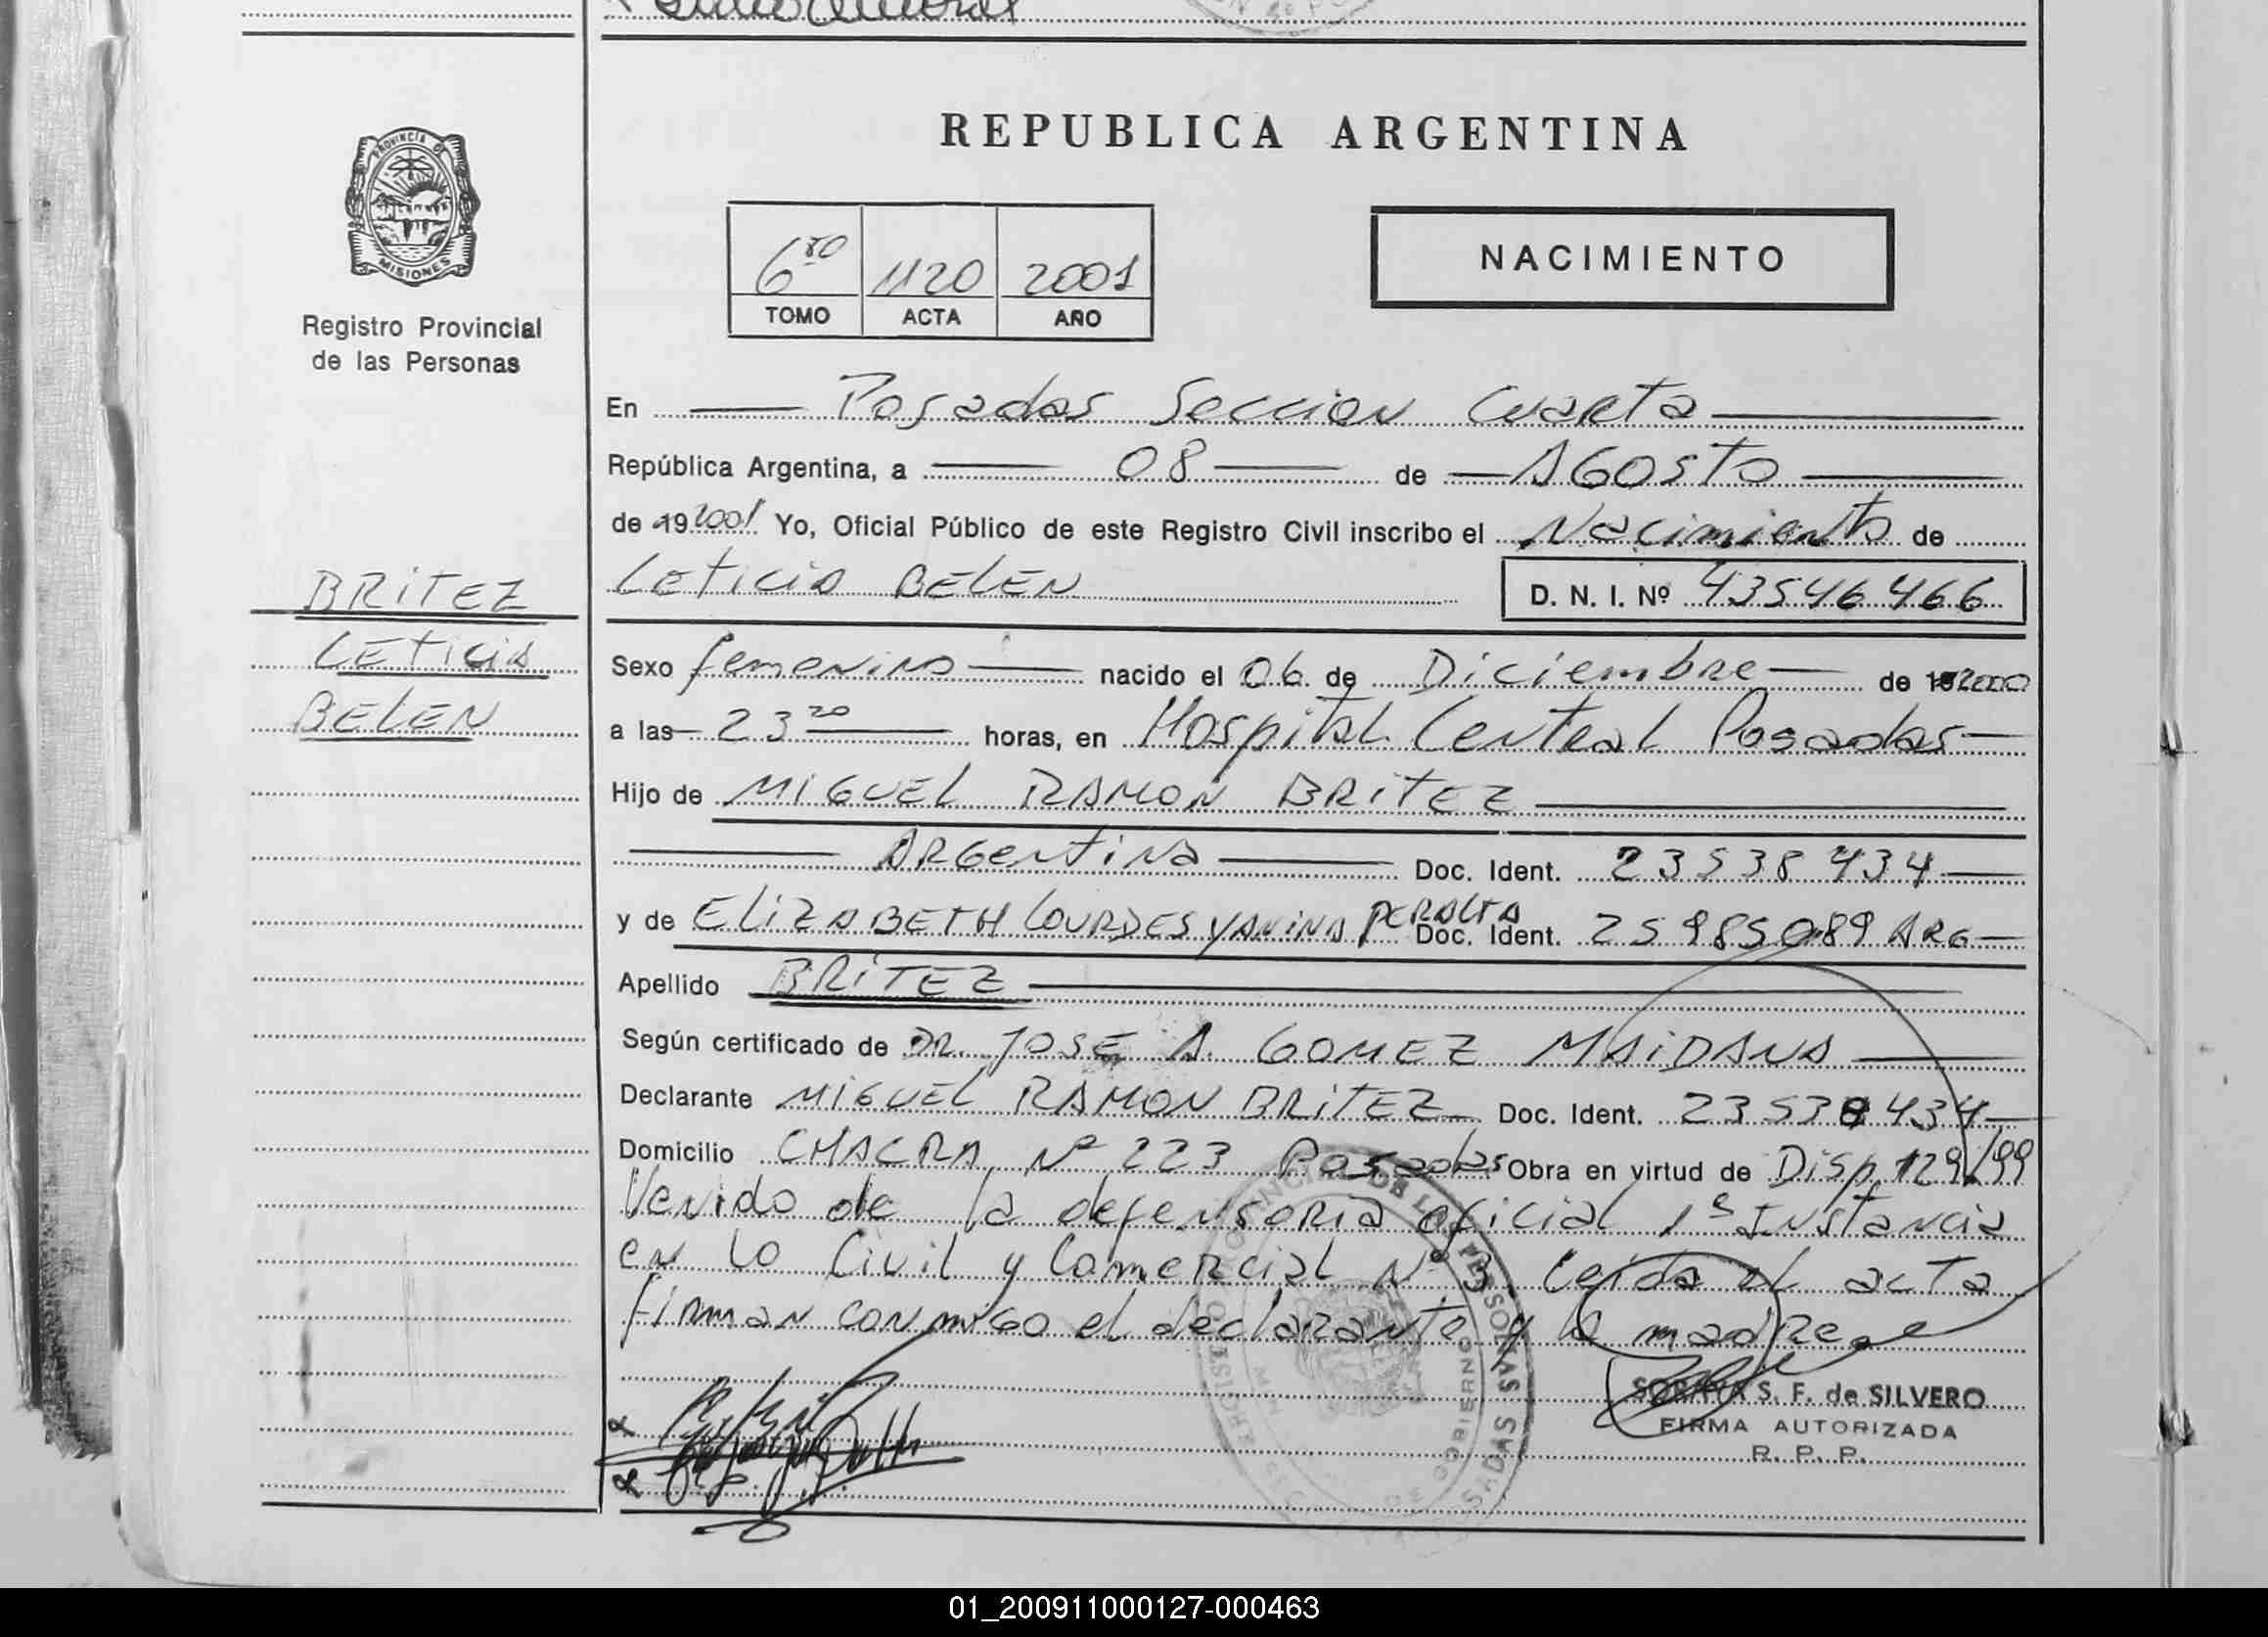 PROVINCIA DE
MISIONES
Registro Provincial
de las Personas
BRITEZ
LETICIA
BELEN
REPUBLICA ARGENTINA
6to 1120 2001
TOMO ACTA AÑO
NACIMIENTO
En Posadas Seccion Cuarta
República Argentina, a 08 de AGOSTO
de 19 2001 Yo, Oficial Público de este Registro Civil inscribo el Nacimiento de
LETICIA BELEN D. N. I. Nº 43546466
Sexo femenino nacido el 06 de Diciembre de 19 2000
a las 23 20 horas, en Hospital Central Posadas
Hijo de MIGUEL RAMON BRITEZ
ARGENTINA Doc. Ident. 23538434
y de ELIZABETH LOURDES YANINA PERALTA Doc. Ident. 25985089 ARG
Apellido BRITEZ
Según certificado de DR. JOSE A. GOMEZ MAIDANA
Declarante MIGUEL RAMON BRITEZ Doc. Ident. 23538434
Domicilio CHACRA Nº 223 Posadas Obra en virtud de Disp 129/99
Venido de la defensoria oficial 1º Instancia
en lo Civil y Comercial Nº 3. Leida el acta
firman conmigo el declarante y la madre
SORAYA S. F. de SILVERO
FIRMA AUTORIZADA
R. P. P.
01_200911000127-000463